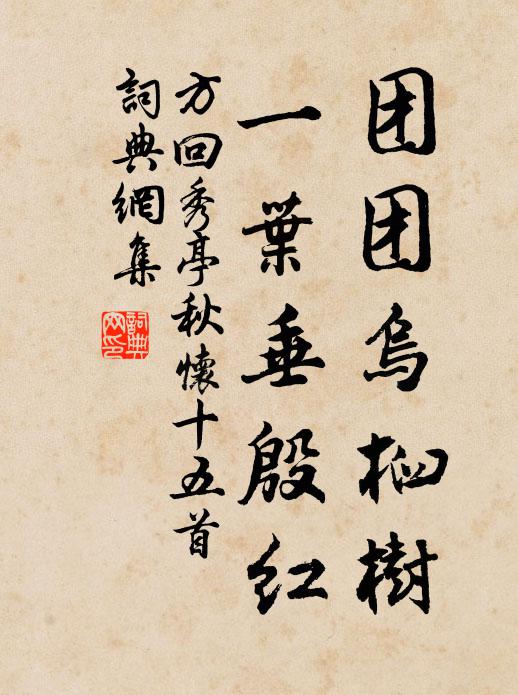 团团乌桕樹
一葉垂殷红
方回秀亭秋懷十五首
詞典網集
詞典網印